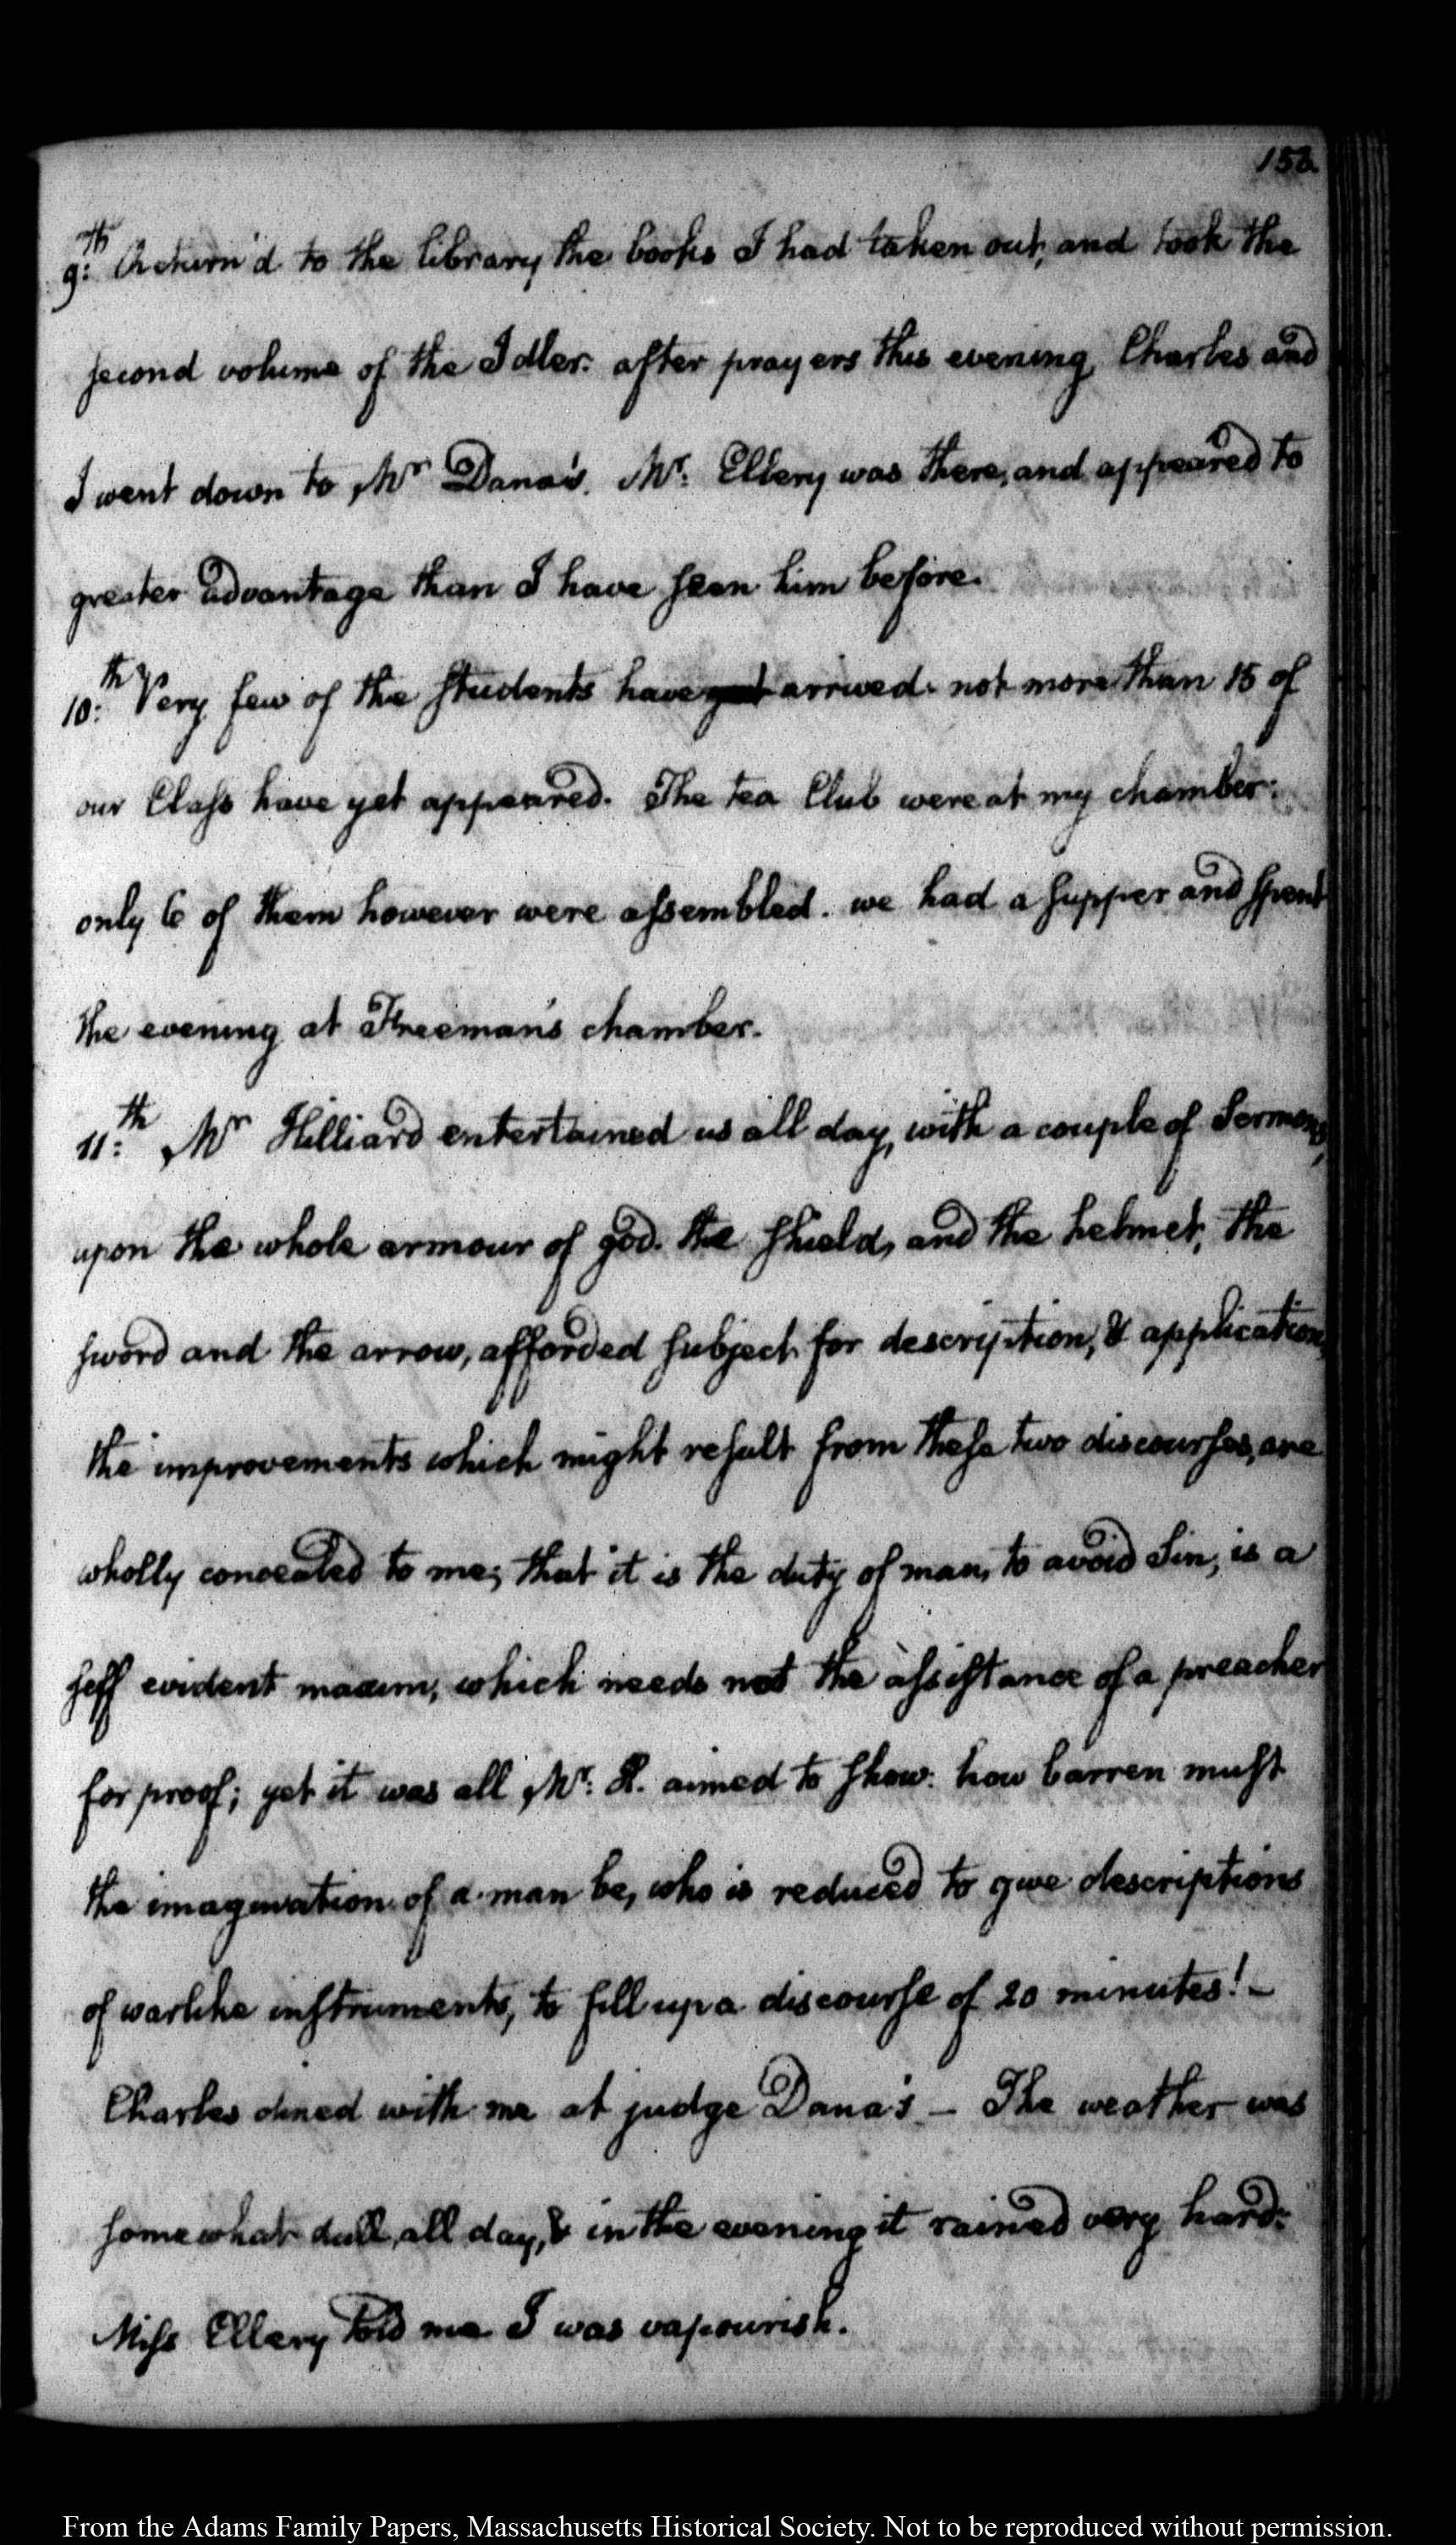 158.
9:th Return'd to the library the books I had taken out, and took the
second volume of the Idler: after prayers this evening, Charles and
I went down to Mr Dana's. Mr: Ellery was there, and appeared to
greater advantage than I have seen him before.
10:th Very few of the students have yet arrived. not more than 15 of
our Class have yet appeared. The tea Club were at my chamber:
only 6 of them however were assembled. we had a supper and spent
the evening at Freeman's chamber.
11:th Mr Hilliard entertained us all day, with a couple of Sermons,
upon the whole armour of god. the shield, and the helmet, the
sword and the arrow, afforded subject for description, & application,
the improvements which might result from these two discourses, are
wholly concealed to me; that it is the duty of man, to avoid Sin, is a
seff evident maxim, which needs not the assistance of a preacher
for proof; yet it was all Mr: H. aimed to show: how barren must
the imagination of a man be, who is reduced to give descriptions
of warlike instruments, to fill up a discourse of 20 minutes! –
Charles dined with me at judge Dana's – The weather was
somewhat dull, all day, & in the evening it rained very hard:
Miss Ellery told me I was vapourish.
From the Adams Family Papers, Massachusetts Historical Society. Not to be reproduced without permission.